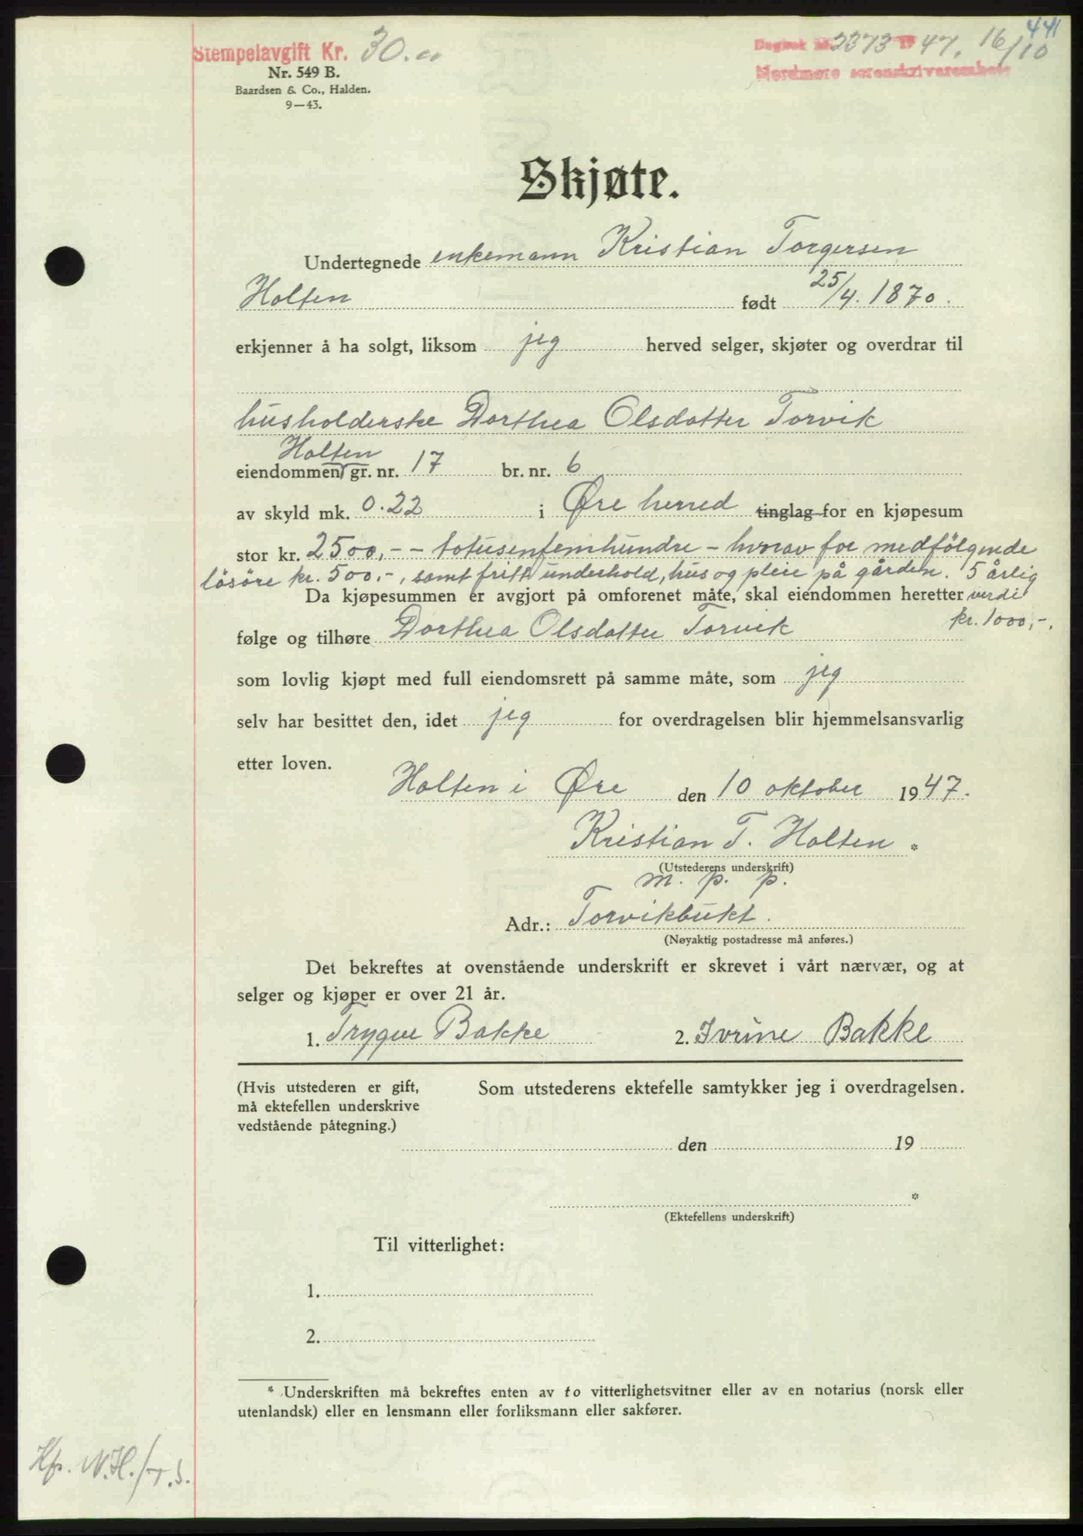 441
Stempelavgift Kr. 30.00
Dagbok nr. 2373 19 47. 16/10
Nordmøre sorenskriverembete
Nr. 549 B.
Baardsen & Co., Halden.
9—43.
Skjøte.
Undertegnede enkemann Kristian Torgersen
Holten født 25/4. 1870.
erkjenner å ha solgt, liksom jeg herved selger, skjøter og overdrar til
husholderske Dorthea Olsdatter Torvik
Holten
eiendommen gr. nr. 17 br. nr. 6
av skyld mk. 0.22 i Øre herred tinglag for en kjøpesum
stor kr. 2500,- - totusenfemhundre - hvorav for medfølgende
lösöre kr. 500,-, samt fritt underhold, hus og pleie på gården. 5 årlig
Da kjøpesummen er avgjort på omforenet måte, skal eiendommen heretter verdi
kr. 1000,-.
følge og tilhøre Dorthea Olsdatter Torvik
som lovlig kjøpt med full eiendomsrett på samme måte, som jeg
selv har besittet den, idet jeg for overdragelsen blir hjemmelsansvarlig
etter loven.
Holten i Øre den 10 oktober 1947.
Kristian T. Holten *
(Utstederens underskrift)
m. p. p.
Adr.: Torvikbukt.
(Nøyaktig postadresse må anføres.)
Det bekreftes at ovenstående underskrift er skrevet i vårt nærvær, og at
selger og kjøper er over 21 år.
1. Trygve Bakke 2. Ivrine Bakke
(Hvis utstederen er gift, Som utstederens ektefelle samtykker jeg i overdragelsen.
må ektefellen underskrive
vedstående påtegning.)
den 19
*
(Ektefellens underskrift)
Til vitterlighet:
1.
2.
* Underskriften må bekreftes enten av to vitterlighetsvitner eller av en notarius (norsk eller
utenlandsk) eller en lensmann eller forliksmann eller sakfører.
Kp. N.H./T.S.